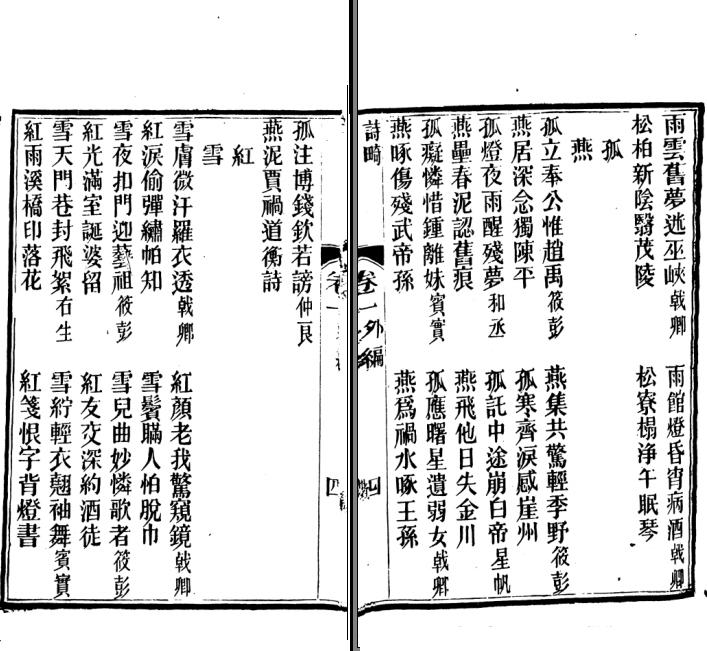 雨雲舊夢迷巫峽戟卿 雨館燈昏宵病酒戟卿
松柏新陰翳茂陵 松寮榻淨午眠琴
孤
燕
孤立奉公惟趙禹筱彭 燕集共驚輕季野筱彭
燕居深念獨陳平 孤寒齊淚感崖州
孤燈夜雨醒殘夢和丞 孤託中途崩白帝星帆
燕壘春泥認舊痕 燕飛他日失金川
孤癡憐惜鍾離妹賓實 孤應曙星遺弱女戟卿
燕啄傷殘武帝孫 燕爲禍水啄王孫
詩畸 卷一外編 四
孤注博錢欽若謗仲艮
燕泥賈禍道衡詩
紅
雪
雪膚微汗羅衣透戟卿 紅顏老我驚窺鏡戟卿
紅淚偷彈繡帕知 雪鬢瞞人怕脫巾
雪夜扣門迎藝祖筱彭 雪兒曲妙憐歌者筱彭
紅光滿室誕婆留 紅友交深約酒徒
雪天門巷封飛絮右生 雪紵輕衣翹袖舞賓實
紅雨溪橋印落花 紅箋恨字背燈書